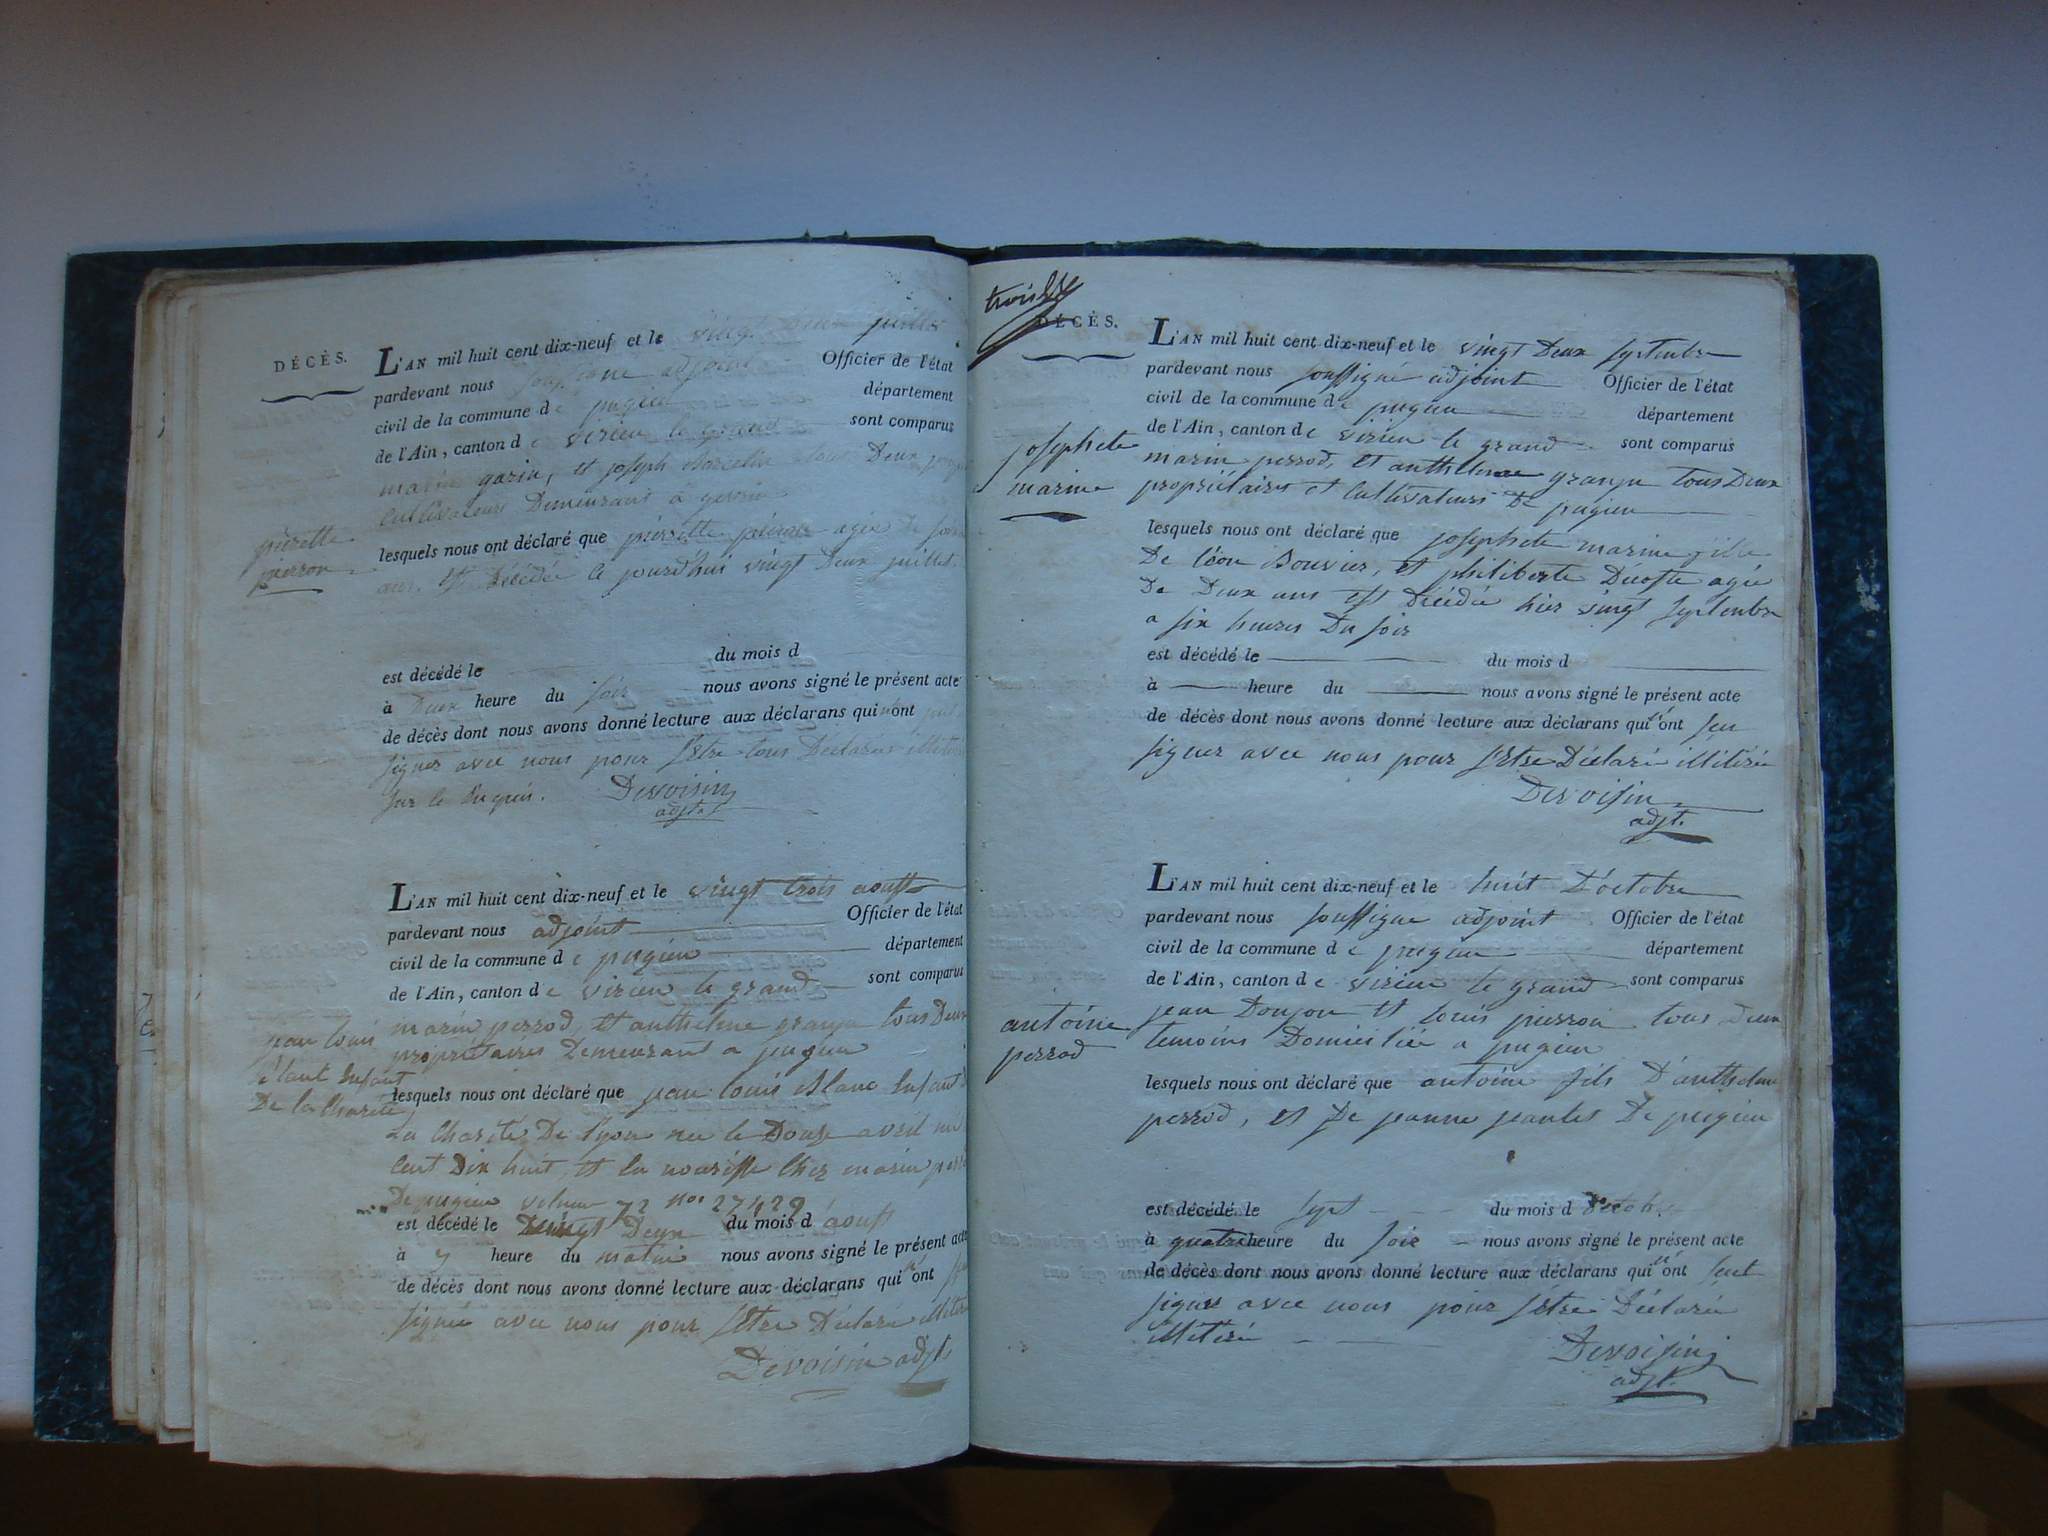 DÉCÈS.
L'AN mil huit cent dix-neuf et le vingt Deux juillet
pardevant nous soussigné adjoint Officier de l'état
civil de la commune de pugieu département
de l'Ain, canton de virieu le grand sont comparus
marin garin, et joseph tous Deux
cultivateurs Demeurant à
pierrette
pierron
lesquels nous ont déclaré que pierrette pierron agée De
ans est Décédée le jourd'hui vingt Deux juillet
est décédé le du mois d
à Deux heure du soir nous avons signé le présent acte
de décès dont nous avons donné lecture aux déclarans qui n'ont
signer avec nous pour s'etre tous Déclarés
sur le Requis. Devoisin
adjt.
L'AN mil huit cent dix-neuf et le vingt trois aoust
pardevant nous adjoint Officier de l'état
civil de la commune de pugieu département
de l'Ain, canton de virieu le grand sont comparus
marin perrod, et anthelme granju tous Deux
propriétaires Demeurant a pugieu
jean louis
blanc Enfant
De la Charité
lesquels nous ont déclaré que jean louis Blanc Enfant
La Charité De Lyon née le Douze avril
cent Dix huit, et en nourisse chez marin
De pugieu volume 72 nos 27429
est décédé le vingt Deux du mois d'aoust
à 7 heure du matin nous avons signé le présent acte
de décès dont nous avons donné lecture aux déclarans qui n'ont
signée avec nous pour s'etre Déclaré
Devoisin adjt.
DÉCÈS.
L'AN mil huit cent dix-neuf et le vingt Deux septembre
pardevant nous soussigné adjoint Officier de l'état
civil de la commune de pugieu département
de l'Ain, canton de virieu le grand sont comparus
marin perrod, et anthelme granju tous Deux
propriétaires et cultivateurs De pugieu
josephete
marine
lesquels nous ont déclaré que josephete marine fille
De léon Bouvier, et philiberte Décoste agée
De Deux ans est Décédée hier vingt septembre
a six heures Du soir
est décédé le du mois d
à heure du nous avons signé le présent acte
de décès dont nous avons donné lecture aux déclarans qui n'ont seu
signer avec nous pour s'etre Déclaré illitéré
Devoisin
adjt.
L'AN mil huit cent dix-neuf et le huit D'octobre
pardevant nous soussigné adjoint Officier de l'état
civil de la commune de pugieu département
de l'Ain, canton de virieu le grand sont comparus
jean Doujon et louis pierron tous Deux
temoins Domiciliée a pugieu
antoine
perrod
lesquels nous ont déclaré que antoine fils D'anthelme
perrod, et De jeanne De pugieu
est décédé le sept du mois d'octobre
à quatre heure du soir nous avons signé le présent acte
de décès dont nous avons donné lecture aux déclarans qui n'ont seut
signer avec nous pour s'etre Déclarée
illitéré
Devoisin
adjt.